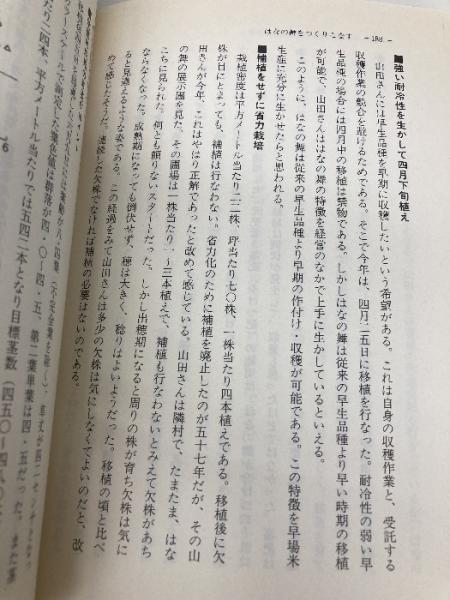 はなの舞をつくりこなす　―198―
■強い耐冷性を生かして四月下旬植え
山田さんには早生品種を早期に収穫したいという希望がある。これは自身の収穫作業と、受託する
収穫作業の競合を避けるためである。そこで今年は、四月二五日に移植を行なった。耐冷性の弱い早
生品種の場合には四月中の移植は禁物である。しかしはなの舞は従来の早生品種より早い時期の移植
が可能で、山田さんははなの舞の特徴を経営のなかで上手に生かしているといえる。
このように、はなの舞は従来の早生品種より早期の作付け・収穫が可能である。この特徴を早場米
生産に充分に生かせたらと思われる。
■補植をせずに省力栽培
栽植密度は平方メートル当たり二二株、坪当たり七〇株、一株当たり四本植えである。移植後に欠
株が目にとまっても、補植は行なわない。省力化のために補植を廃止したのが五十七年だが、その山
田さんが今年、これはやはり正解であったと改めて感じている。山田さんは隣村で、たまたま、はな
の舞の展示圃を見た。その圃場は一株当たり一〜三本植えで、補植も行なわないとみえて欠株があち
こちに見られ、何とも頼りないスタートだった。しかし出穂期になると周りの株が育ち欠株は気に
ならなくなった。成熟期になっても倒伏せず、穂は大きく、稔りはよいようだった。移植の頃と比べ
ると見違えるような姿である。この経過をみて山田さんは多少の欠株は気にしなくてよいのだと、改
めて感じたそうだ。連続した欠株でなければ補植の必要はないのである。